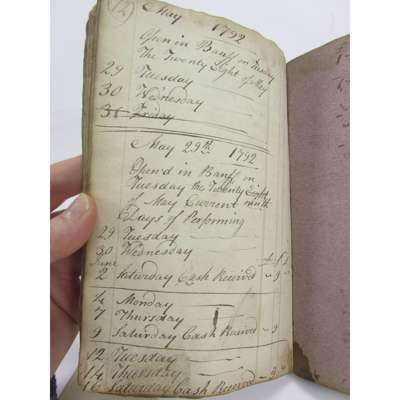 12
May 1792
Open in Banff on Tuesday
The Twenty Eight of May
29 Tuesday
30 Wednesday
31 Friday
May 29th 1792
Open'd in Banff on
Tuesday the Twenty Eight
of May Current with
Days of Performing
29 Tuesday
30 Wednesday
June
2 Saturday Cash Received - 9 -
4 Monday
7 Thursday
9 Saturday Cash Received - 9
12 Tuesday
14 Thursday
16 Saturday Cash Received - 9 -